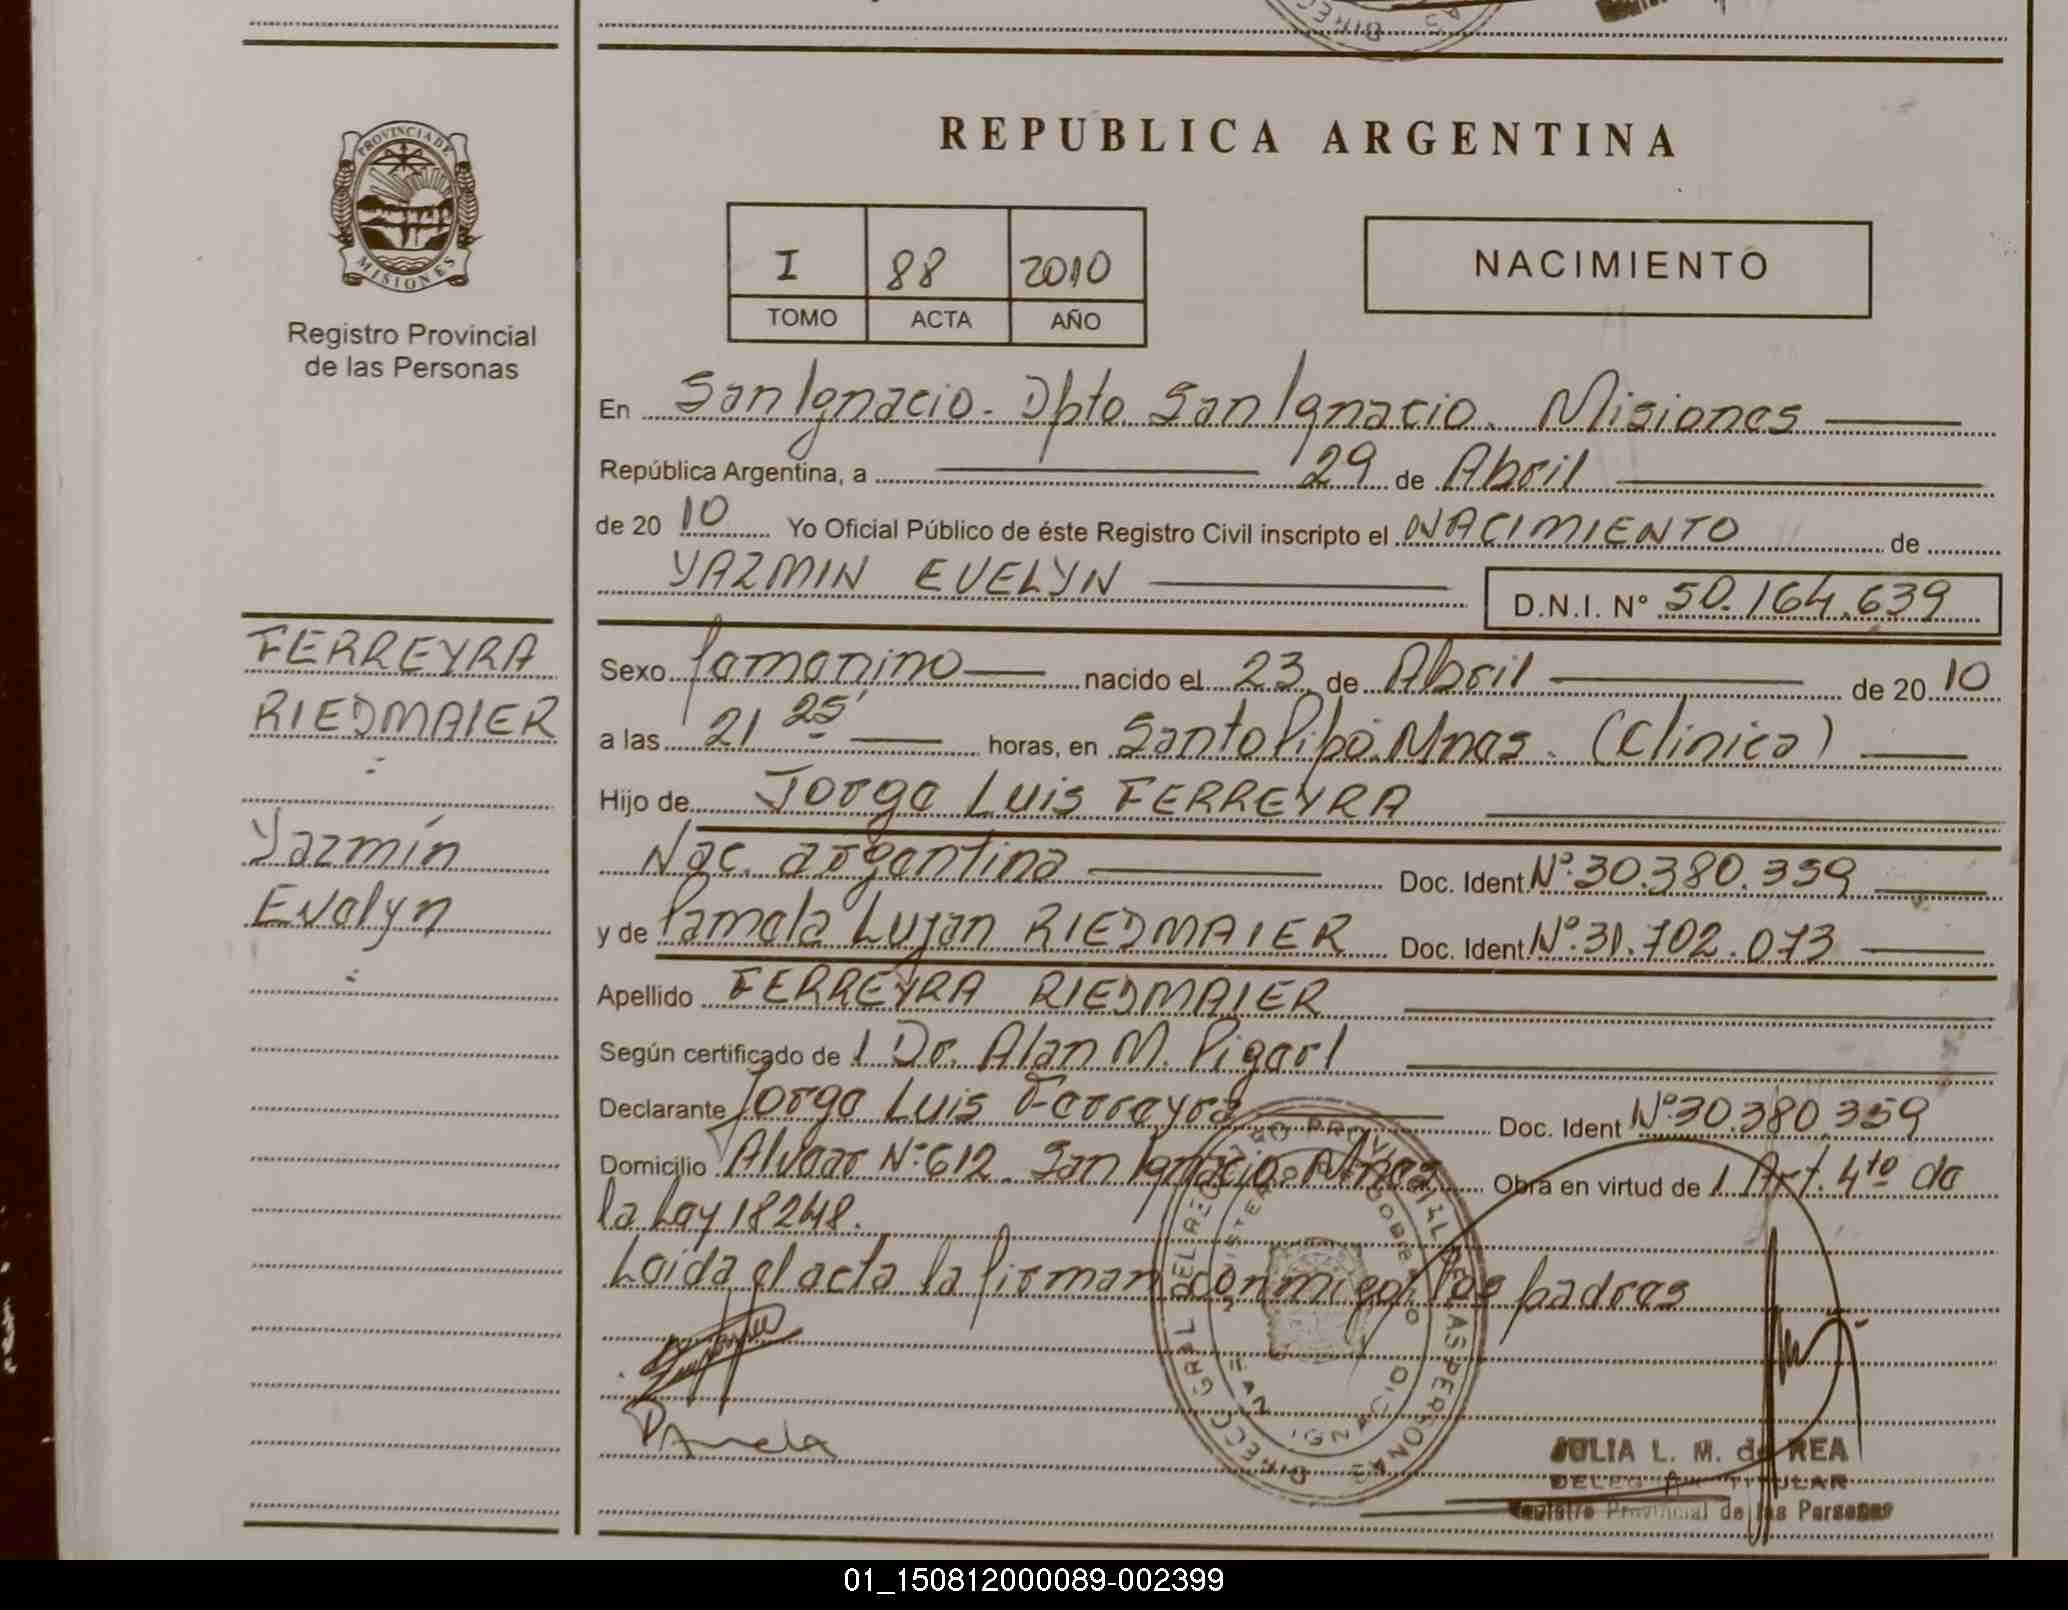 REPUBLICA ARGENTINA
PROVINCIA DE
MISIONES
Registro Provincial
de las Personas
I 88 2010
TOMO ACTA AÑO
NACIMIENTO
En San Ignacio. Dpto San Ignacio. Misiones
República Argentina, a 29 de Abril
de 20 10 Yo Oficial Público de éste Registro Civil inscripto el NACIMIENTO de
YAZMIN EVELYN D.N.I. N° 50.164.639
FERREYRA
RIEDMAIER
Yazmín
Evelyn
Sexo femenino nacido el 23 de Abril de 20 10
a las 21 25' horas, en Santo Pipó. Mnes. (Clinica)
Hijo de Jorge Luis FERREYRA
Nac. argentina Doc. Ident. N°.30.380.359
y de Pamela Lujan RIEDMAIER Doc. Ident. N°.31.702.073
Apellido FERREYRA RIEDMAIER
Según certificado de 1 Dr. Alan M. Pigerl
Declarante Jorge Luis Ferreyra Doc. Ident N°.30.380.359
Domicilio Alvear N°.612. San Ignacio Mnes Obra en virtud de 1 Art. 4to de
la Ley 18248.
Leida el acta la firman conmigo, los padres
Pamela
JULIA L. M. de REA
TITULAR
Registro Provincial de las Personas
01_150812000089-002399